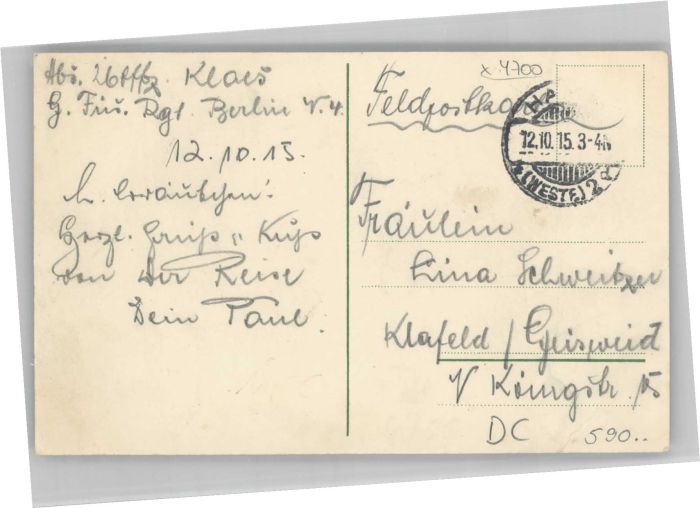 Abs. Uffz. Klaes
G. Füs. Rgt. Berlin N. 4.
12.10.15.
L. Bräutchen!
Herzl. Gruß u. Kuß
von der Reise
Dein Paul.
x 4700
Feldpostka
HA
12.10.15.3-4N
(WESTF.) 2
Fräulein
Lina Schweitzer
Klafeld / Geisweid
Königstr. 15
DC
590..